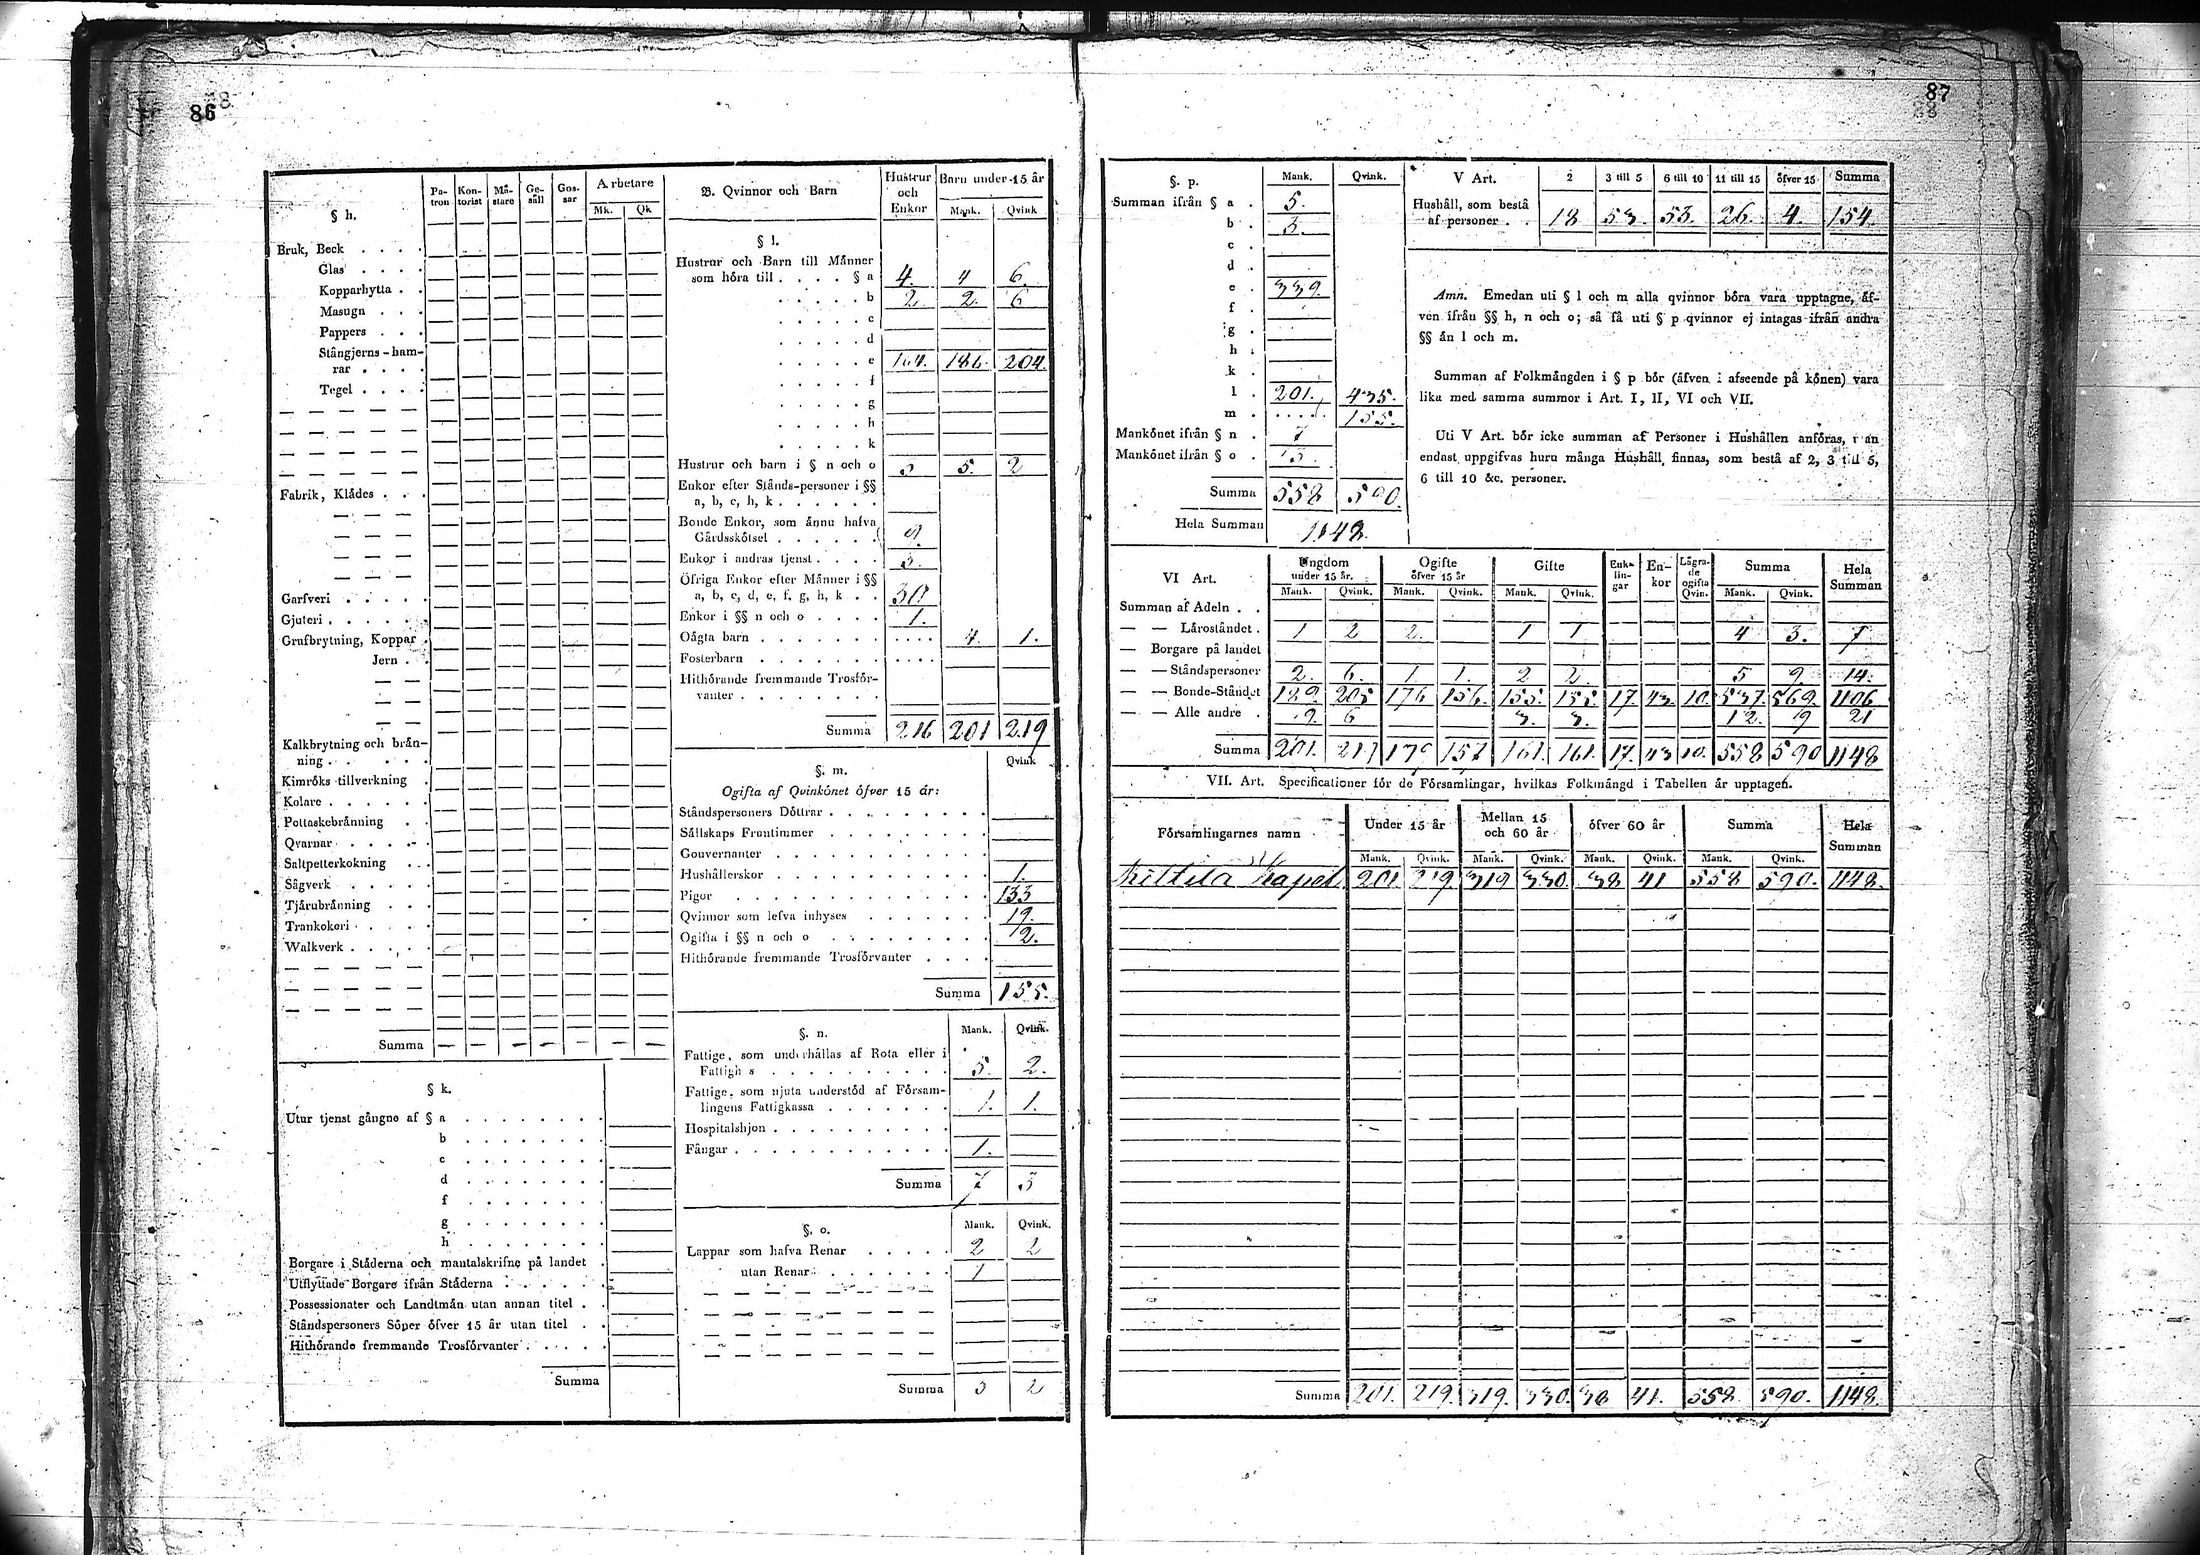 86
§ h.
Pa-tron Kon-torist Mä-stare Ge-säll Gos-sar Arbetare Mk. Qk
Bruk, Beck . . . .
Glas . . . .
Kopparhytta . .
Masugn . . .
Pappers . . .
Stångjerns-ham-
rar . . . .
Tegel . . . .
Fabrik, Klädes . . .
Garfveri . . . . .
Gjuteri . . . . . .
Grufbrytning, Koppar .
Jern . .
Kalkbrytning och brän-
ning . . . . .
Kimröks tillverkning .
Kolare . . . . . .
Pottaskebränning . .
Qvarnar . . . . .
Saltpetterkokning . . .
Sågverk . . . . .
Tjärubränning . . .
Trankokeri . . . .
Walkverk . . . . .
Summa — — — — — — —
§ k.
Utur tjenst gångne af § a . . . . . . .
b . . . . . . .
c . . . . . . .
d . . . . . . .
f . . . . . . .
g . . . . . . .
h . . . . . . .
Borgare i Städerna och mantalskrifne på landet .
Utflyttade Borgare ifrån Städerna . . . . .
Possessionater och Landtmän utan annan titel . .
Ståndspersoners Söner öfver 15 år utan titel . .
Hithörande fremmande Trosförvanter . . . . .
Summa
B. Qvinnor och Barn Hustrur och Enkor Barn under 15 år Mank. Qvink
§ l.
Hustrur och Barn till Männer
som höra till . . . . § a 4. 4 6.
. . . . . b 2. 2. 6
. . . . . c
. . . . . d
. . . . . e 164. 186. 204.
. . . . . f
. . . . . g
. . . . . h
. . . . . k
Hustrur och barn i § n och o 3 5. 2
Enkor efter Stånds-personer i §§
a, b, c, h, k . . . . . .
Bonde Enkor, som ännu hafva
Gårdsskötsel . . . . . . 9.
Enkor i andras tjenst . . . . 3.
Öfriga Enkor efter Männer i §§
a, b, c, d, e, f, g, h, k . . 30
Enkor i §§ n och o . . . . 1.
Oägta barn . . . . . . . . . . . 4. 1.
Fosterbarn . . . . . . . . . . .
Hithörande fremmande Trosför-
vanter . . . . . . . .
Summa 216 201 219
§. m. Qvink
Ogifta af Qvinkönet öfver 15 år:
Ståndspersoners Döttrar . . . . . . . . .
Sällskaps Fruntimmer . . . . . . . . .
Gouvernanter . . . . . . . . . . . .
Hushållerskor . . . . . . . . . . . 1.
Pigor . . . . . . . . . . . . . . 133
Qvinnor som lefva inhyses . . . . . . . 19.
Ogifta i §§ n och o . . . . . . . . . 2.
Hithörande fremmande Trosförvanter . . . .
Summa 155.
§. n. Mank. Qvink.
Fattige, som underhållas af Rota eller i
Fattigh s . . . . . . . . . . 5. 2.
Fattige, som njuta understöd af Försam-
lingens Fattigkassa . . . . . . . 1. 1.
Hospitalshjon . . . . . . . . . . .
Fångar . . . . . . . . . . . . . 1.
Summa 7 3
§. o. Mank. Qvink.
Lappar som hafva Renar . . . . . 2 2
utan Renar . . . . . . . 1
Summa 3 2
87
§. p. Mank. Qvink.
Summan ifrån § a . 5.
b . 3.
c .
d .
e . 339.
f .
g .
h .
k .
l . 201. 435.
m . . . . . 155.
Mankönet ifrån § n . 7
Mankönet ifrån § o . 3.
Summa 558 590.
Hela Summan 1148.
V Art. 2 3 till 5 6 till 10 11 till 15 öfver 15 Summa
Hushåll, som bestå
af personer . . 18 53 53. 26. 4. 154.
Anm. Emedan uti § l och m alla qvinnor böra vara upptagne, äf-
ven ifrån §§ h, n och o; så få uti § p qvinnor ej intagas ifrån andra
§§ än l och m.
Summan af Folkmängden i § p bör (äfven i afseende på könen) vara
lika med samma summor i Art. I, II, VI och VII.
Uti V Art. bör icke summan af Personer i Hushållen anföras, utan
endast uppgifvas huru många Hushåll finnas, som bestå af 2, 3 till 5,
6 till 10 &c. personer.
VI Art. Ungdom under 15 år. Ogifte öfver 15 år Gifte Enk-lin-gar En-kor Lägra-de ogifta Qvin. Summa Hela Summan
Mank. Qvink. Mank. Qvink. Mank. Qvink. Mank. Qvink.
Summan af Adeln . .
— — Läroståndet . 1 2 2. 1 1 4 3. 7
— Borgare på landet
— — Ståndspersoner 2. 6. 1 1. 2 2. 5 9. 14.
— — Bonde-Ståndet 189. 205 176 156. 155. 155. 17. 43. 10. 537. 569. 1106
— — Alle andre . 9. 6 3. 3. 12. 9 21
Summa 201. 219 179 157 161. 161. 17. 43 10. 558 590 1148
VII. Art. Specificationer för de Församlingar, hvilkas Folkmängd i Tabellen är upptagen.
Församlingarnes namn Under 15 år Mellan 15 och 60 år öfver 60 år Summa Hela Summan
Mank. Qvink. Mank. Qvink. Mank. Qvink. Mank. Qvink.
Kittila Kapel. 201 219. 319 330. 38 41 558 590. 1148.
Summa 201. 219. 319. 330. 38 41. 558. 590. 1148.